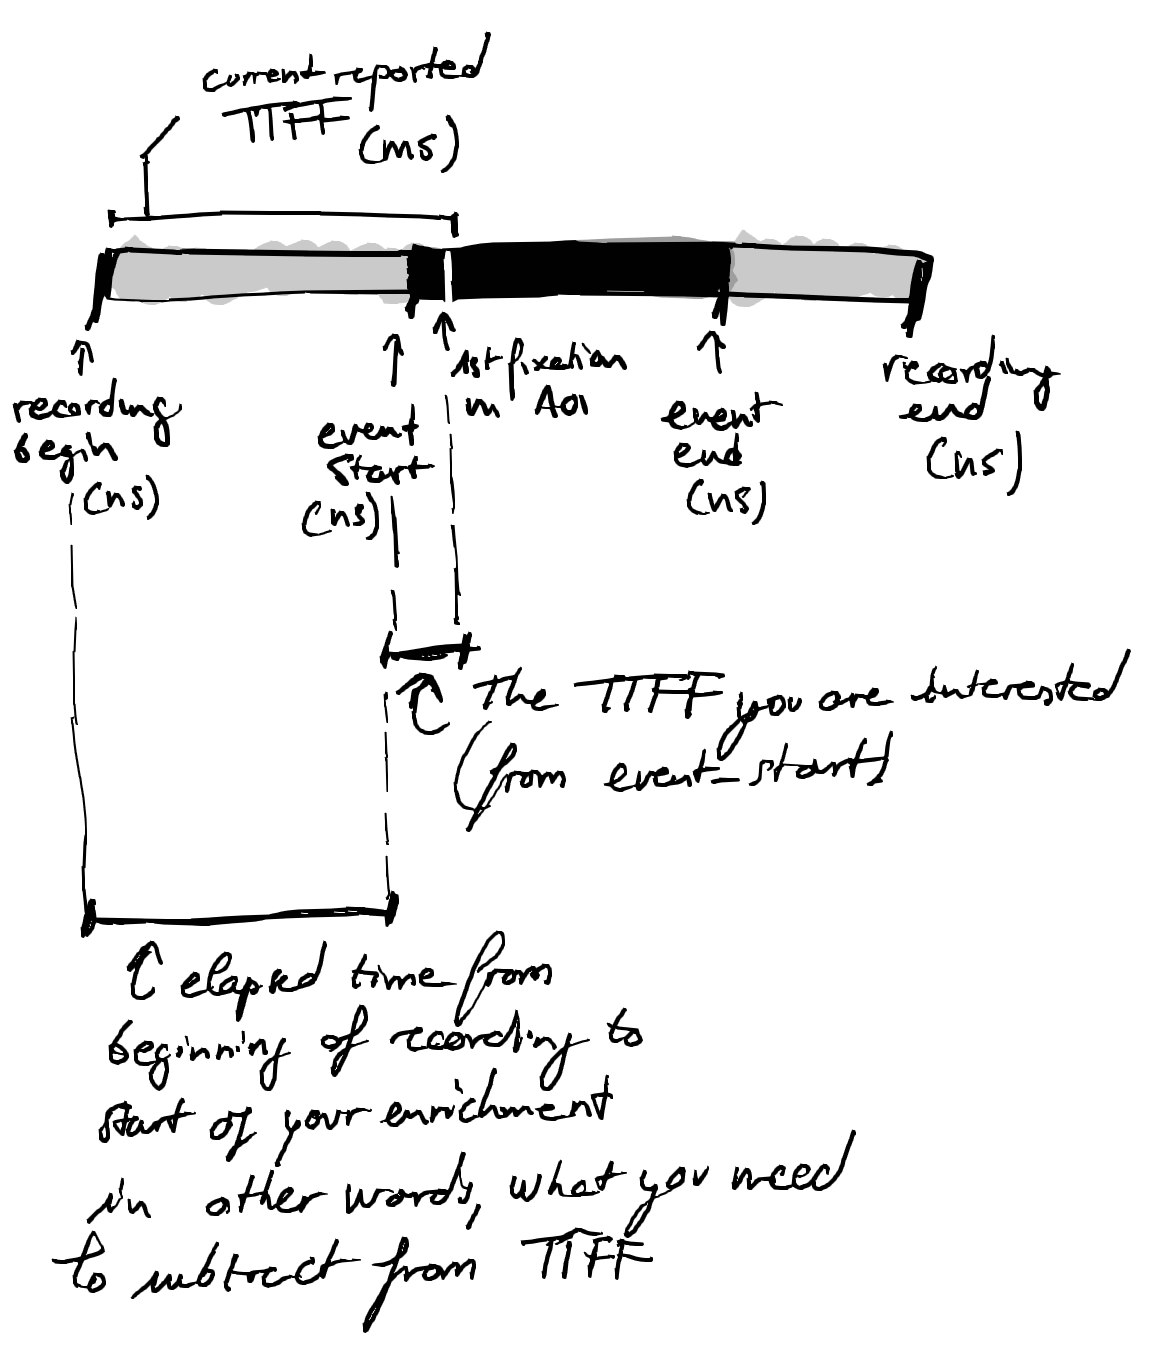 current reported
TTFF
(ms)
recording
begin
(ns)
event
start
(ns)
1st fixation
in AOI
event
end
(ns)
recording
end
(ns)
The TTFF you are interested
(from event_start)
elapsed time from
beginning of recording to
start of your enrichment
in other words, what you need
to subtract from TTFF